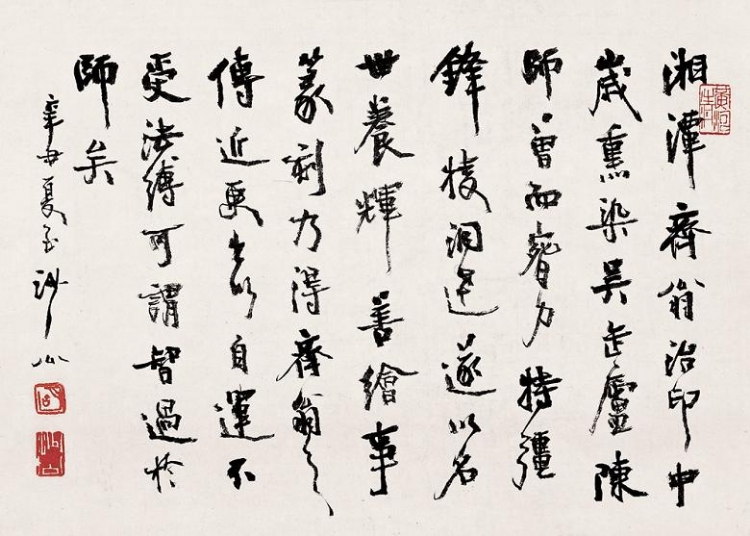 湘潭齊翁治印中
歲熏染吳缶廬陳
師曾而膂力特彊
鋒棱洞達遂以名
世養輝善繪事
篆刻乃得齊翁之
傳近更出以自運不
受法縛可謂智過於
師矣
辛丑夏至沙